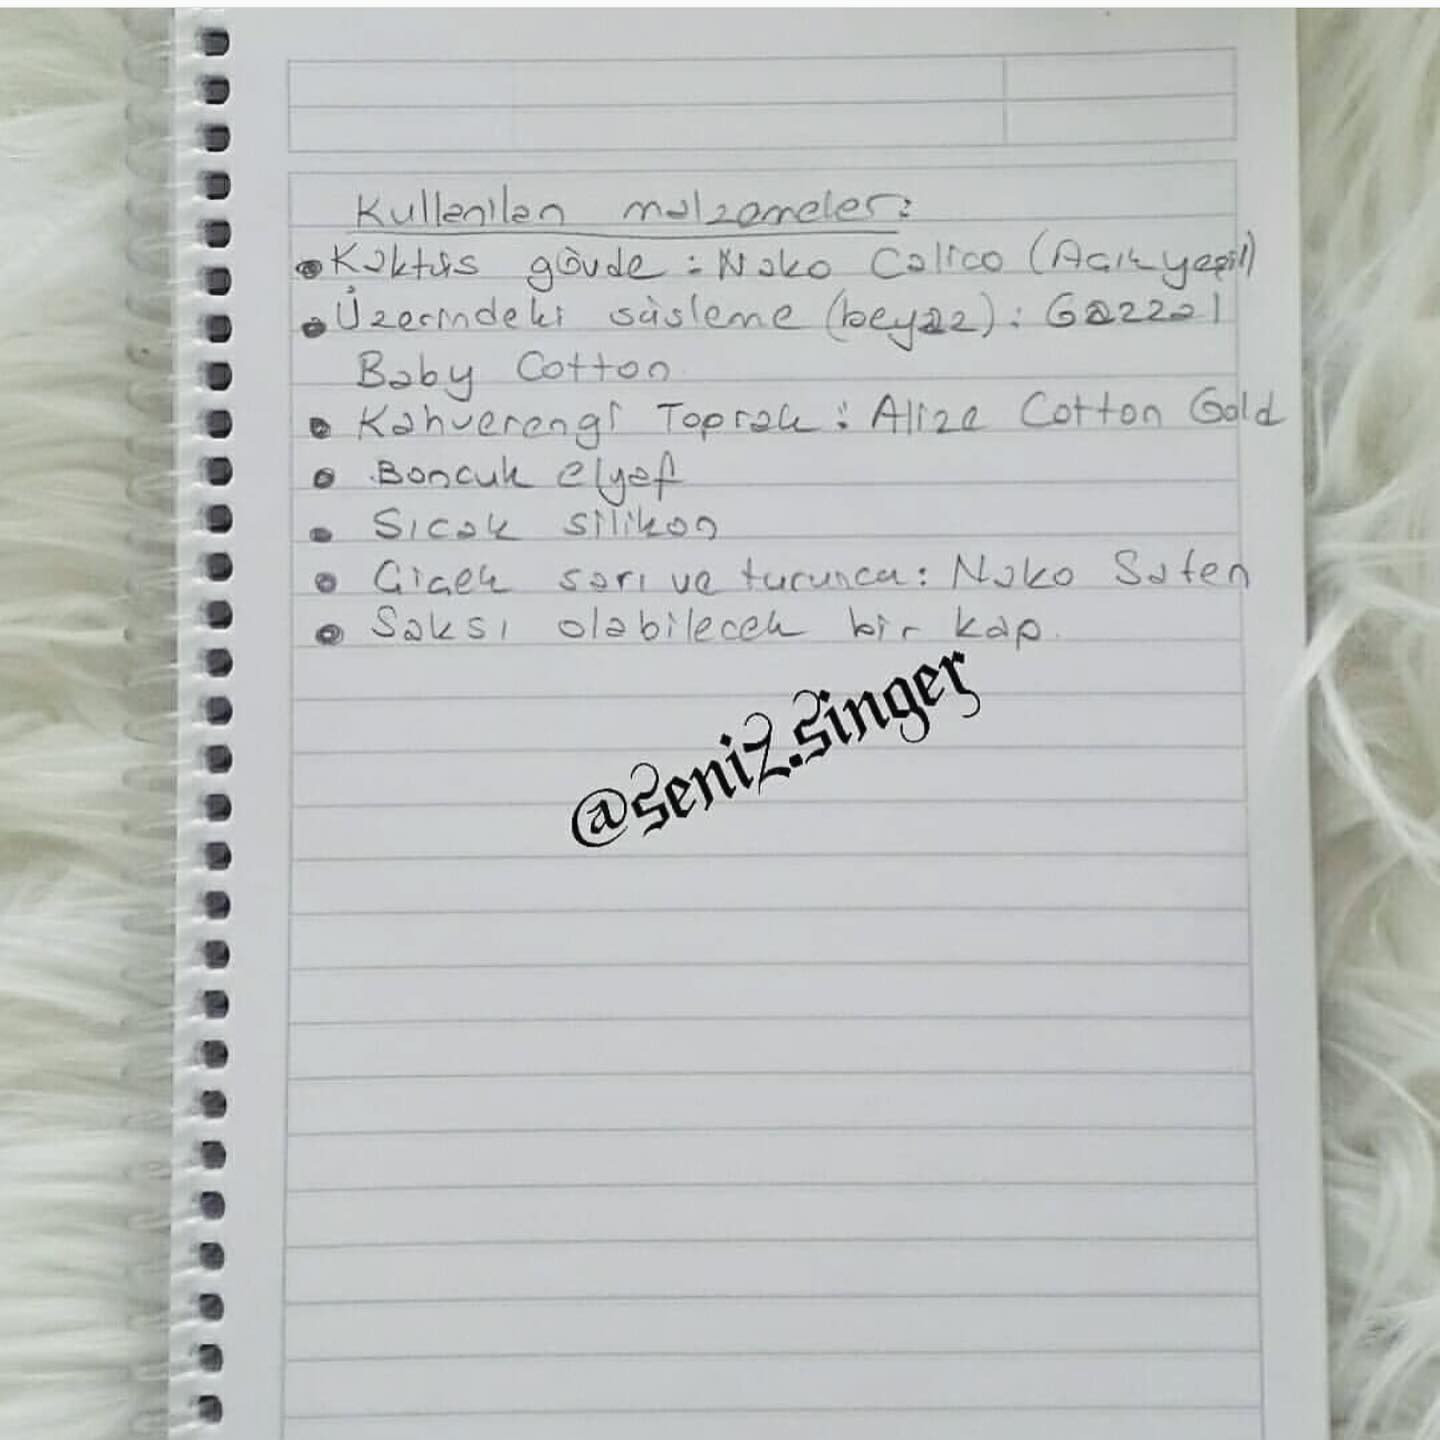 Kullanılan malzemeler:
• Kaktüs gövde : Nako Calico (Açık yeşil)
• Üzerindeki süsleme (beyaz) : Gazzal
Baby Cotton
• Kahverengi Toprak : Alize Cotton Gold
• Boncuk elyaf
• Sıcak silikon
• Çiçek sarı ve turuncu : Nako Saten
• Saksı olabilecek bir kap.
@seniz.singer